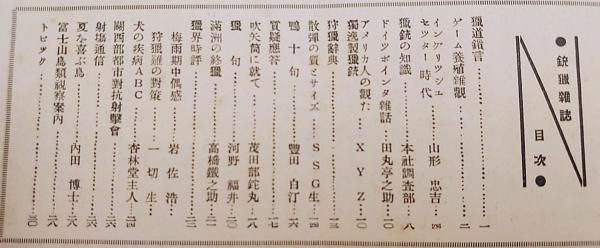 ●銃獵雜誌
目次●
獵道鎖言……一
ゲーム養殖雜觀……二
イングリッシュセッター時代……山形忠吉……
獵銃の知識……本社調査部……八
ドイツポインター雜話……田丸亭之助……一〇
アメリカ人の觀た獨逸製獵銃……XYZ……一〇
狩獵辭典……一三
散彈の質とサイズ……SSG生……一四
鴨十句……豐田白汀……一六
質疑應答……一七
吹矢筒に就て……茂田部鉈丸……一八
獵句……河野福井……二〇
滿洲の終獵……高橋鐵之助……二一
獵界時評……二二
梅雨期中偶感……岩佐浩……
狩獵難の對策……一切生……
犬の疾病ABC……杏林堂主人……二四
關西部都市對抗射擊會……二六
射場通信……二六
夏を喜ぶ鳥……内田博士……二八
富士山鳥類視察案内……二八
トピック……三〇